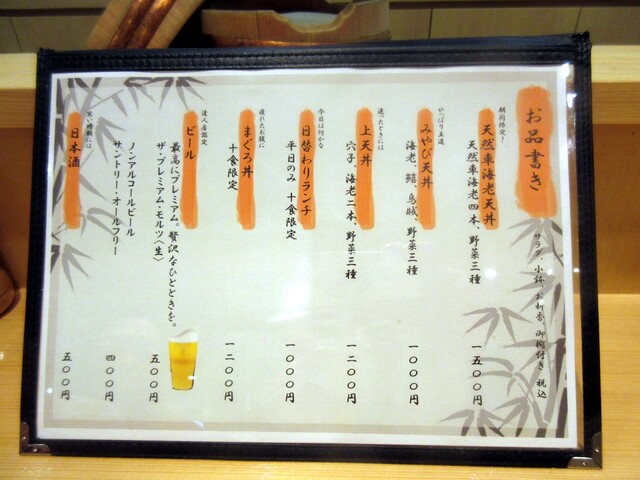 お品書き
サラダ、小鉢、お新香、御椀付き 税込
期間限定!
天然車海老天丼
天然車海老四本、野菜三種
一五〇〇円
やっぱり王道
みやび天丼
海老、鱚、烏賊、野菜三種
一〇〇〇円
迷ったときには
上天丼
穴子、海老二本、野菜三種
一二〇〇円
今日は何かな
日替わりランチ
平日のみ 十食限定
一〇〇〇円
疲れたお腹に
まぐろ丼
十食限定
一二〇〇円
達人店認定
ビール
最高にプレミアム。贅沢なひとときを。
ザ・プレミアム・モルツ〈生〉
五〇〇円
ノンアルコールビール
サントリー・オールフリー
四〇〇円
寒い時期には
日本酒
五〇〇円